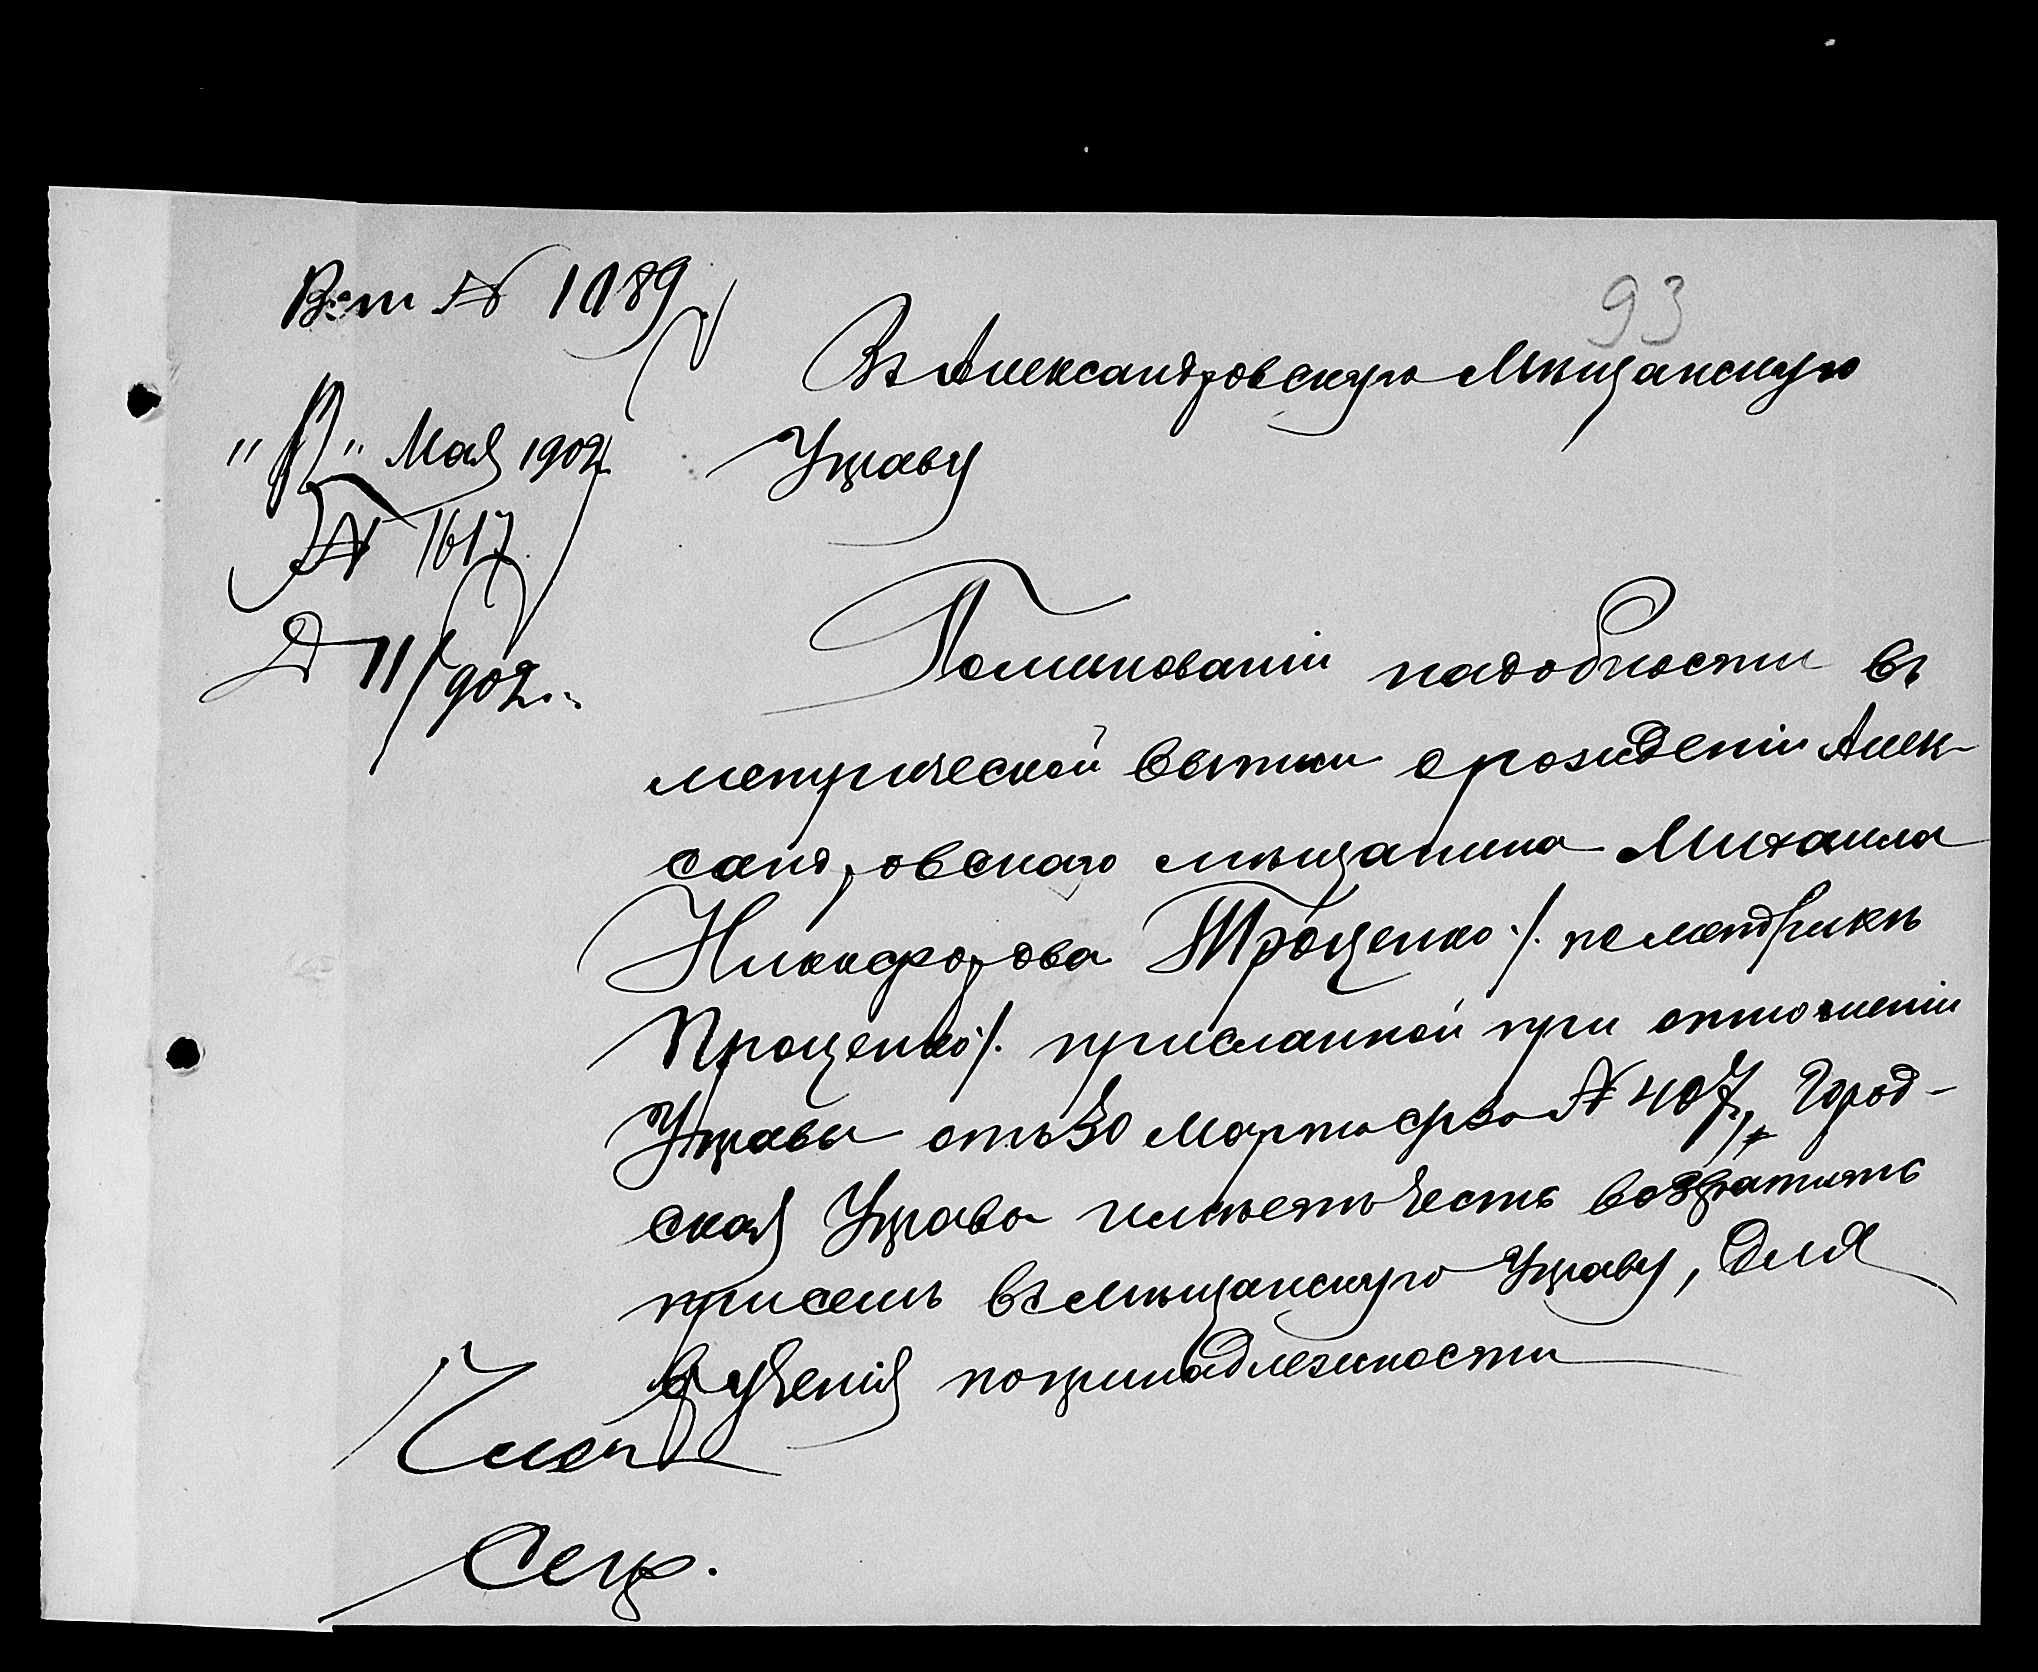 Вст № 1189
93
Въ Александровскую Мѣщанскую
Управу
"12" Мая 1902
№ 1617
Д 11/902.
По минованіи надобности въ
метрической выписи о рожденіи Алек-
сандровскаго мѣщанина Михаила
Никифорова Троценко ./. по метрикѣ
Проценко ./. присланной при отношеніи
Управы отъ 30 Марта с/г за № 407, Город-
ская Управа имѣетъ честь возвратить
при семъ въ мѣщанскую Управу, для
врученія по принадлежности
Член
Секр.